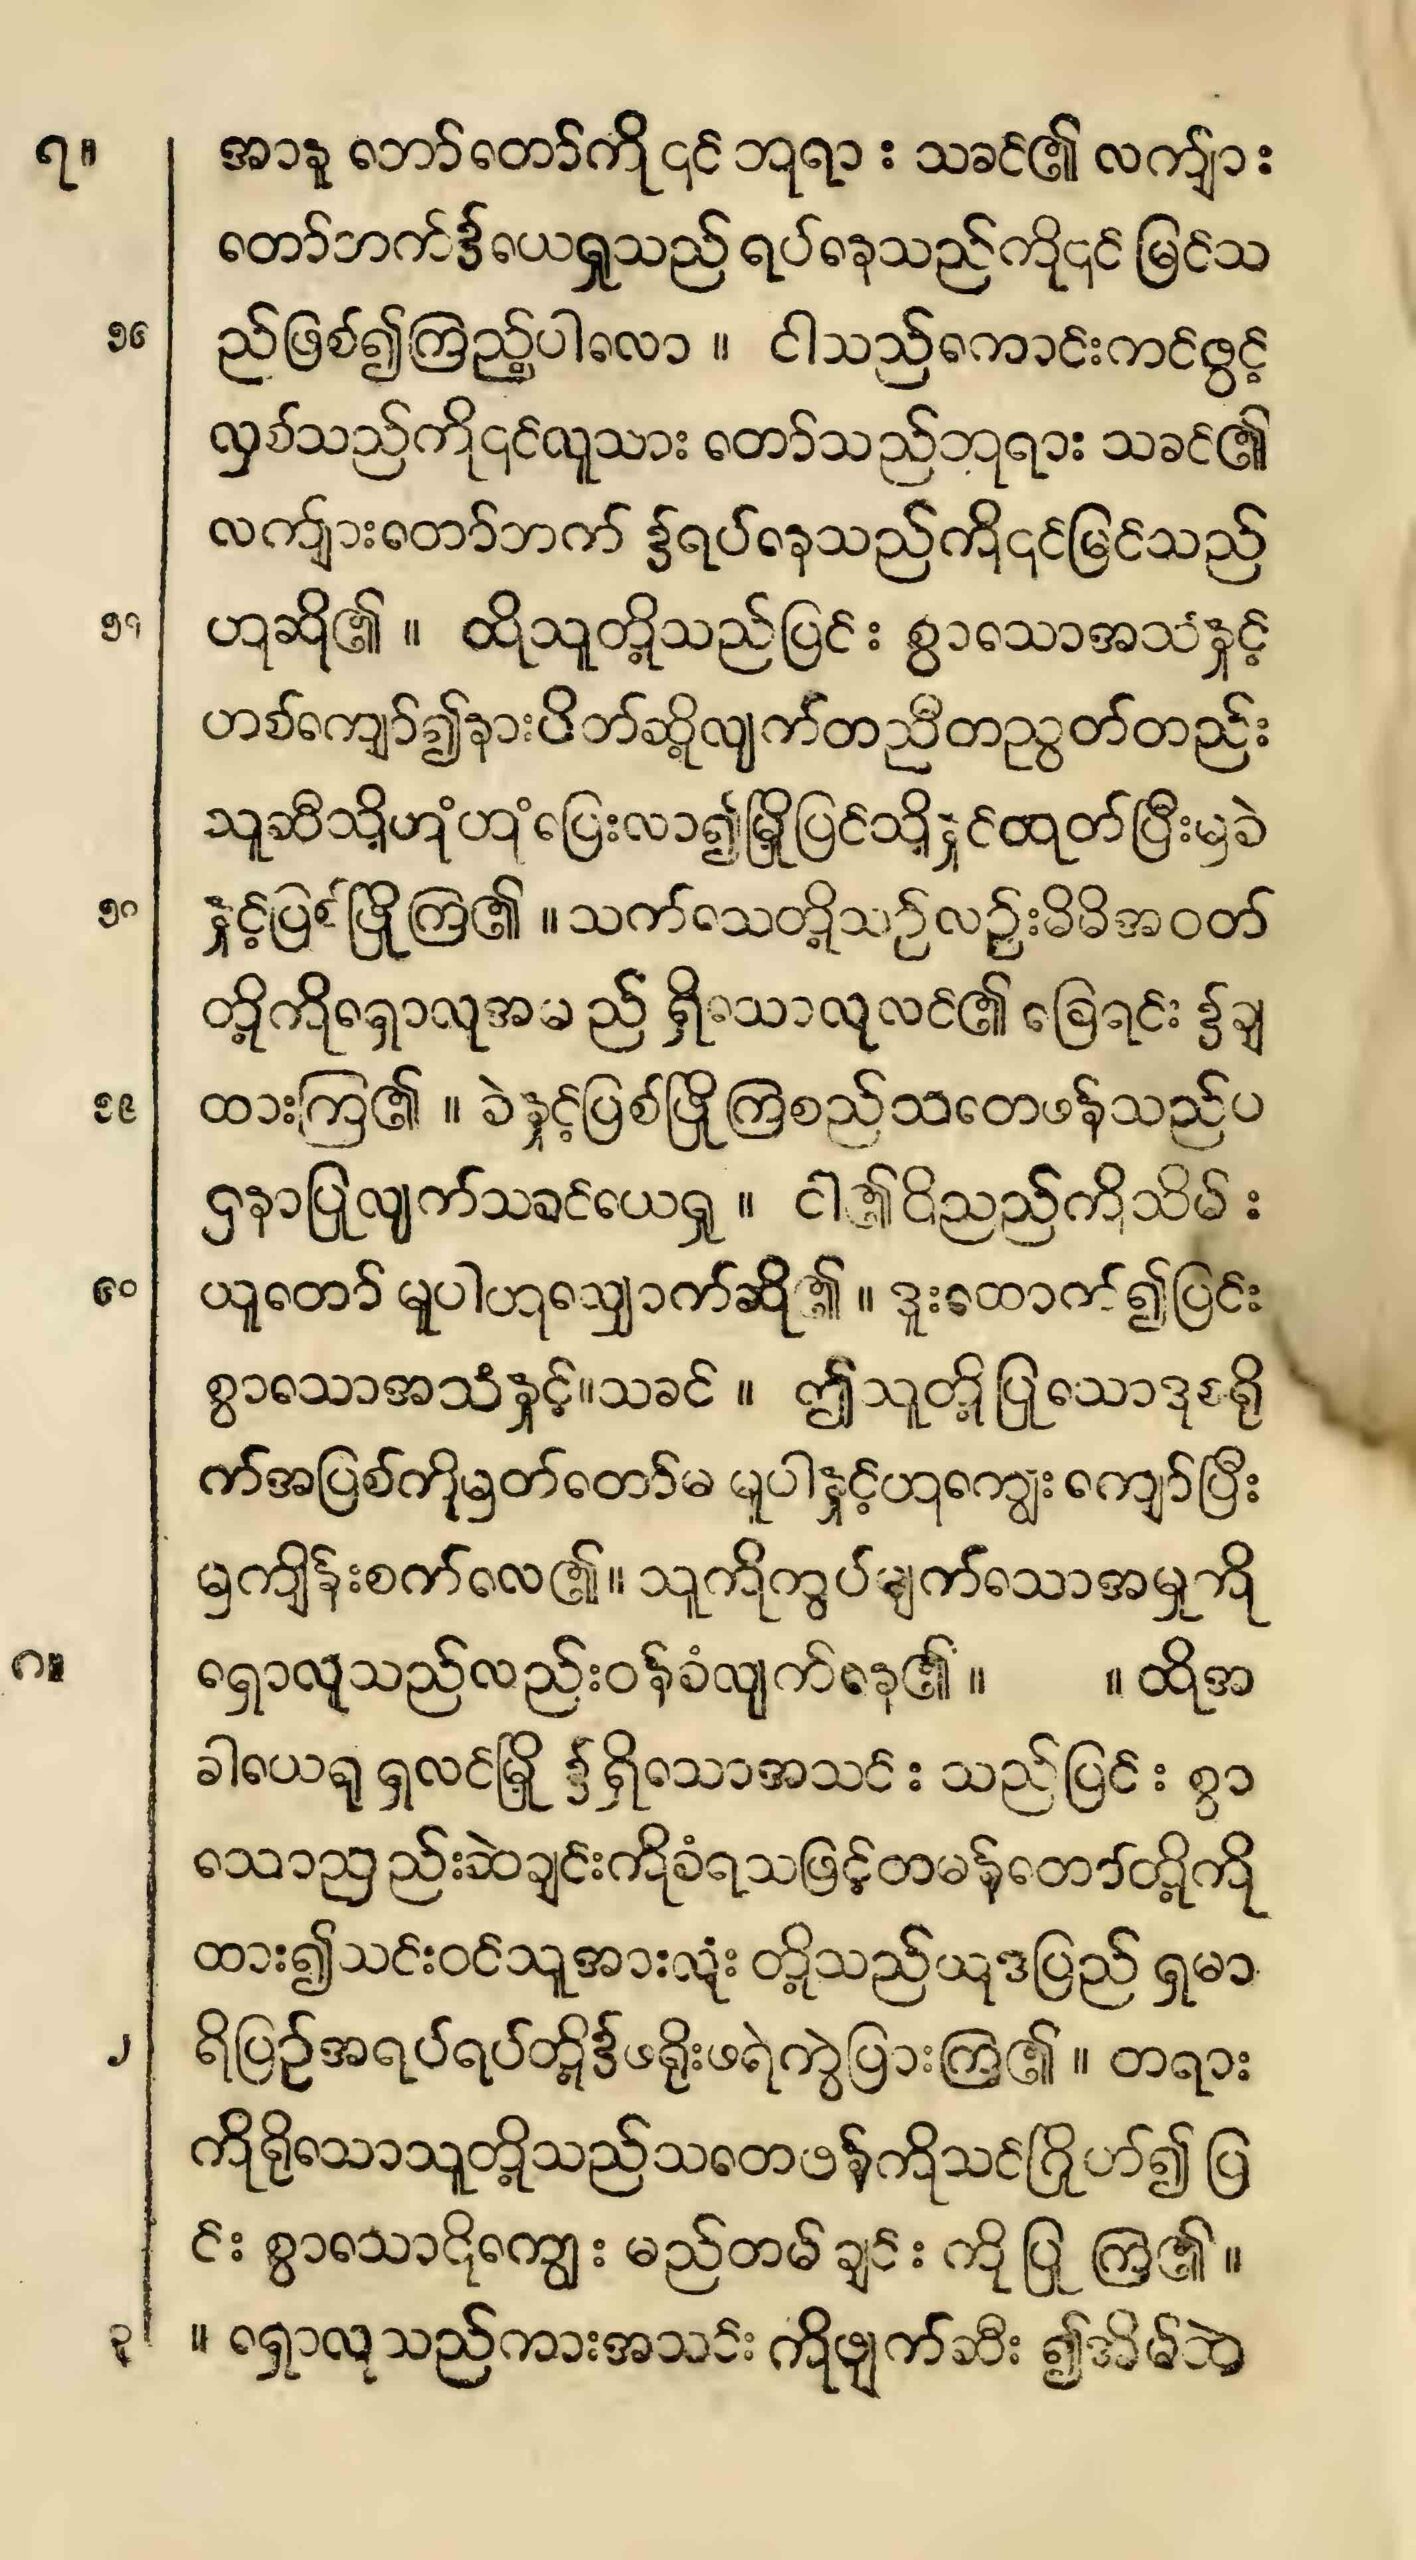 ၇။ အာနူ ဘော်တော်ကို၎င် ဘုရား သခင်၏ လက်ျား
တော်ဘက်၌ယေရှုသည် ရပ်နေသည်ကို၎င် မြင်သ
၅၆ ည်ဖြစ်၍ကြည့်ပါလော ။ ငါသည်ကောင်းကင်ဖွင့်
လှစ်သည်ကို၎င်လူသား တော်သည်ဘုရား သခင်၏
လက်ျားတော်ဘက် ၌ရပ်နေသည်ကို၎င်မြင်သည်
၅၇ ဟုဆို၏ ။ ထိုသူတို့သည်ပြင်း စွာသောအသံနှင့်
ဟစ်ကျော်၍နားပိတ်ဆို့လျက်တညီတညွတ်တည်း
သူဆီသို့ဟုံဟုံပြေးလာ၍မြို့ပြင်သို့နှင်ထုတ်ပြီးမှခဲ
၅၈ နှင့်ပြစ်ဖြိုကြ၏ ။ သက်သေတို့သဉ်လဉ်းမိမိအဝတ်
တို့ကိုရှောလုအမ ည် ရှိသောလုလင်၏ ခြေရင်း ၌ချ
၅၉ ထားကြ၏ ။ ခဲနှင့်ပြစ်ဖြိုကြစည်သတေဖန်သည်ပ
ဌနာပြုလျက်သခင်ယေရှု ။ ငါ၏ဝိညည်ကိုသိမ် း
၆၀ ယူတော် မူပါဟုလျှောက်ဆို၏ ။ ဒူးထောက်၍ပြင်း
စွာသောအသံနှင့်။သခင် ။ ဤသူတို့ပြုသောဒုစရို
က်အပြစ်ကိုမှတ်တော်မ မူပါနှင့်ဟုကျွေး ကျော်ပြီး
မှကျိန်းစက်လေ၏။ သူကိုကွပ်မျက်သောအမှုကို
၈။ ရှောလုသည်လည်းဝန်ခံလျက်နေ၏ ။ ။ ထိုအ
ခါယေရု ရှလင်မြို့ ၌ရှိသောအသင်း သည်ပြင်း စွာ
သောညှည်းဆဲချင်းကိုခံရသဖြင့်တမန်တော်တို့ကို
ထား၍သင်းဝင်သူအားလုံး တို့သည်ယုဒပြည် ရှမာ
၂ ရိပြဉ်အရပ်ရပ်တို့၌ဖရိုးဖရဲကွဲပြားကြ၏ ။ တရား
ကိုရိုသောသူတို့သည်သတေဖန်ကိုသင်ဂြိုဟ်၍ ပြ
င်း စွာသောငိုကျွေး မည်တမ်ချင်း ကိုပြု ကြ၏ ။
၃ ။ ရှောလုသည်ကားအသင်း ကိုဖျက်ဆီး ၍အိမ်ဘဲ